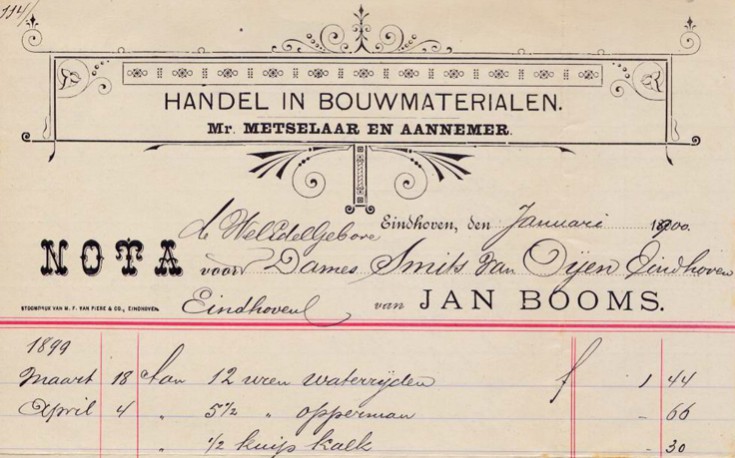 114/
HANDEL IN BOUWMATERIALEN.
Mr. METSELAAR EN AANNEMER.
de WelEdelGebore Eindhoven, den Januari 1900.
NOTA voor Dames Smits van Oijen Eindhoven
STOOMDRUK VAN M. F. VAN PIERE & CO., EINDHOVEN. Eindhoven van JAN BOOMS.
1899
Maart 18 Aan 12 uren waterrijden f 1 44
April 4 " 5 1/2 " opperman - 66
" 1/2 kuip kalk - 30